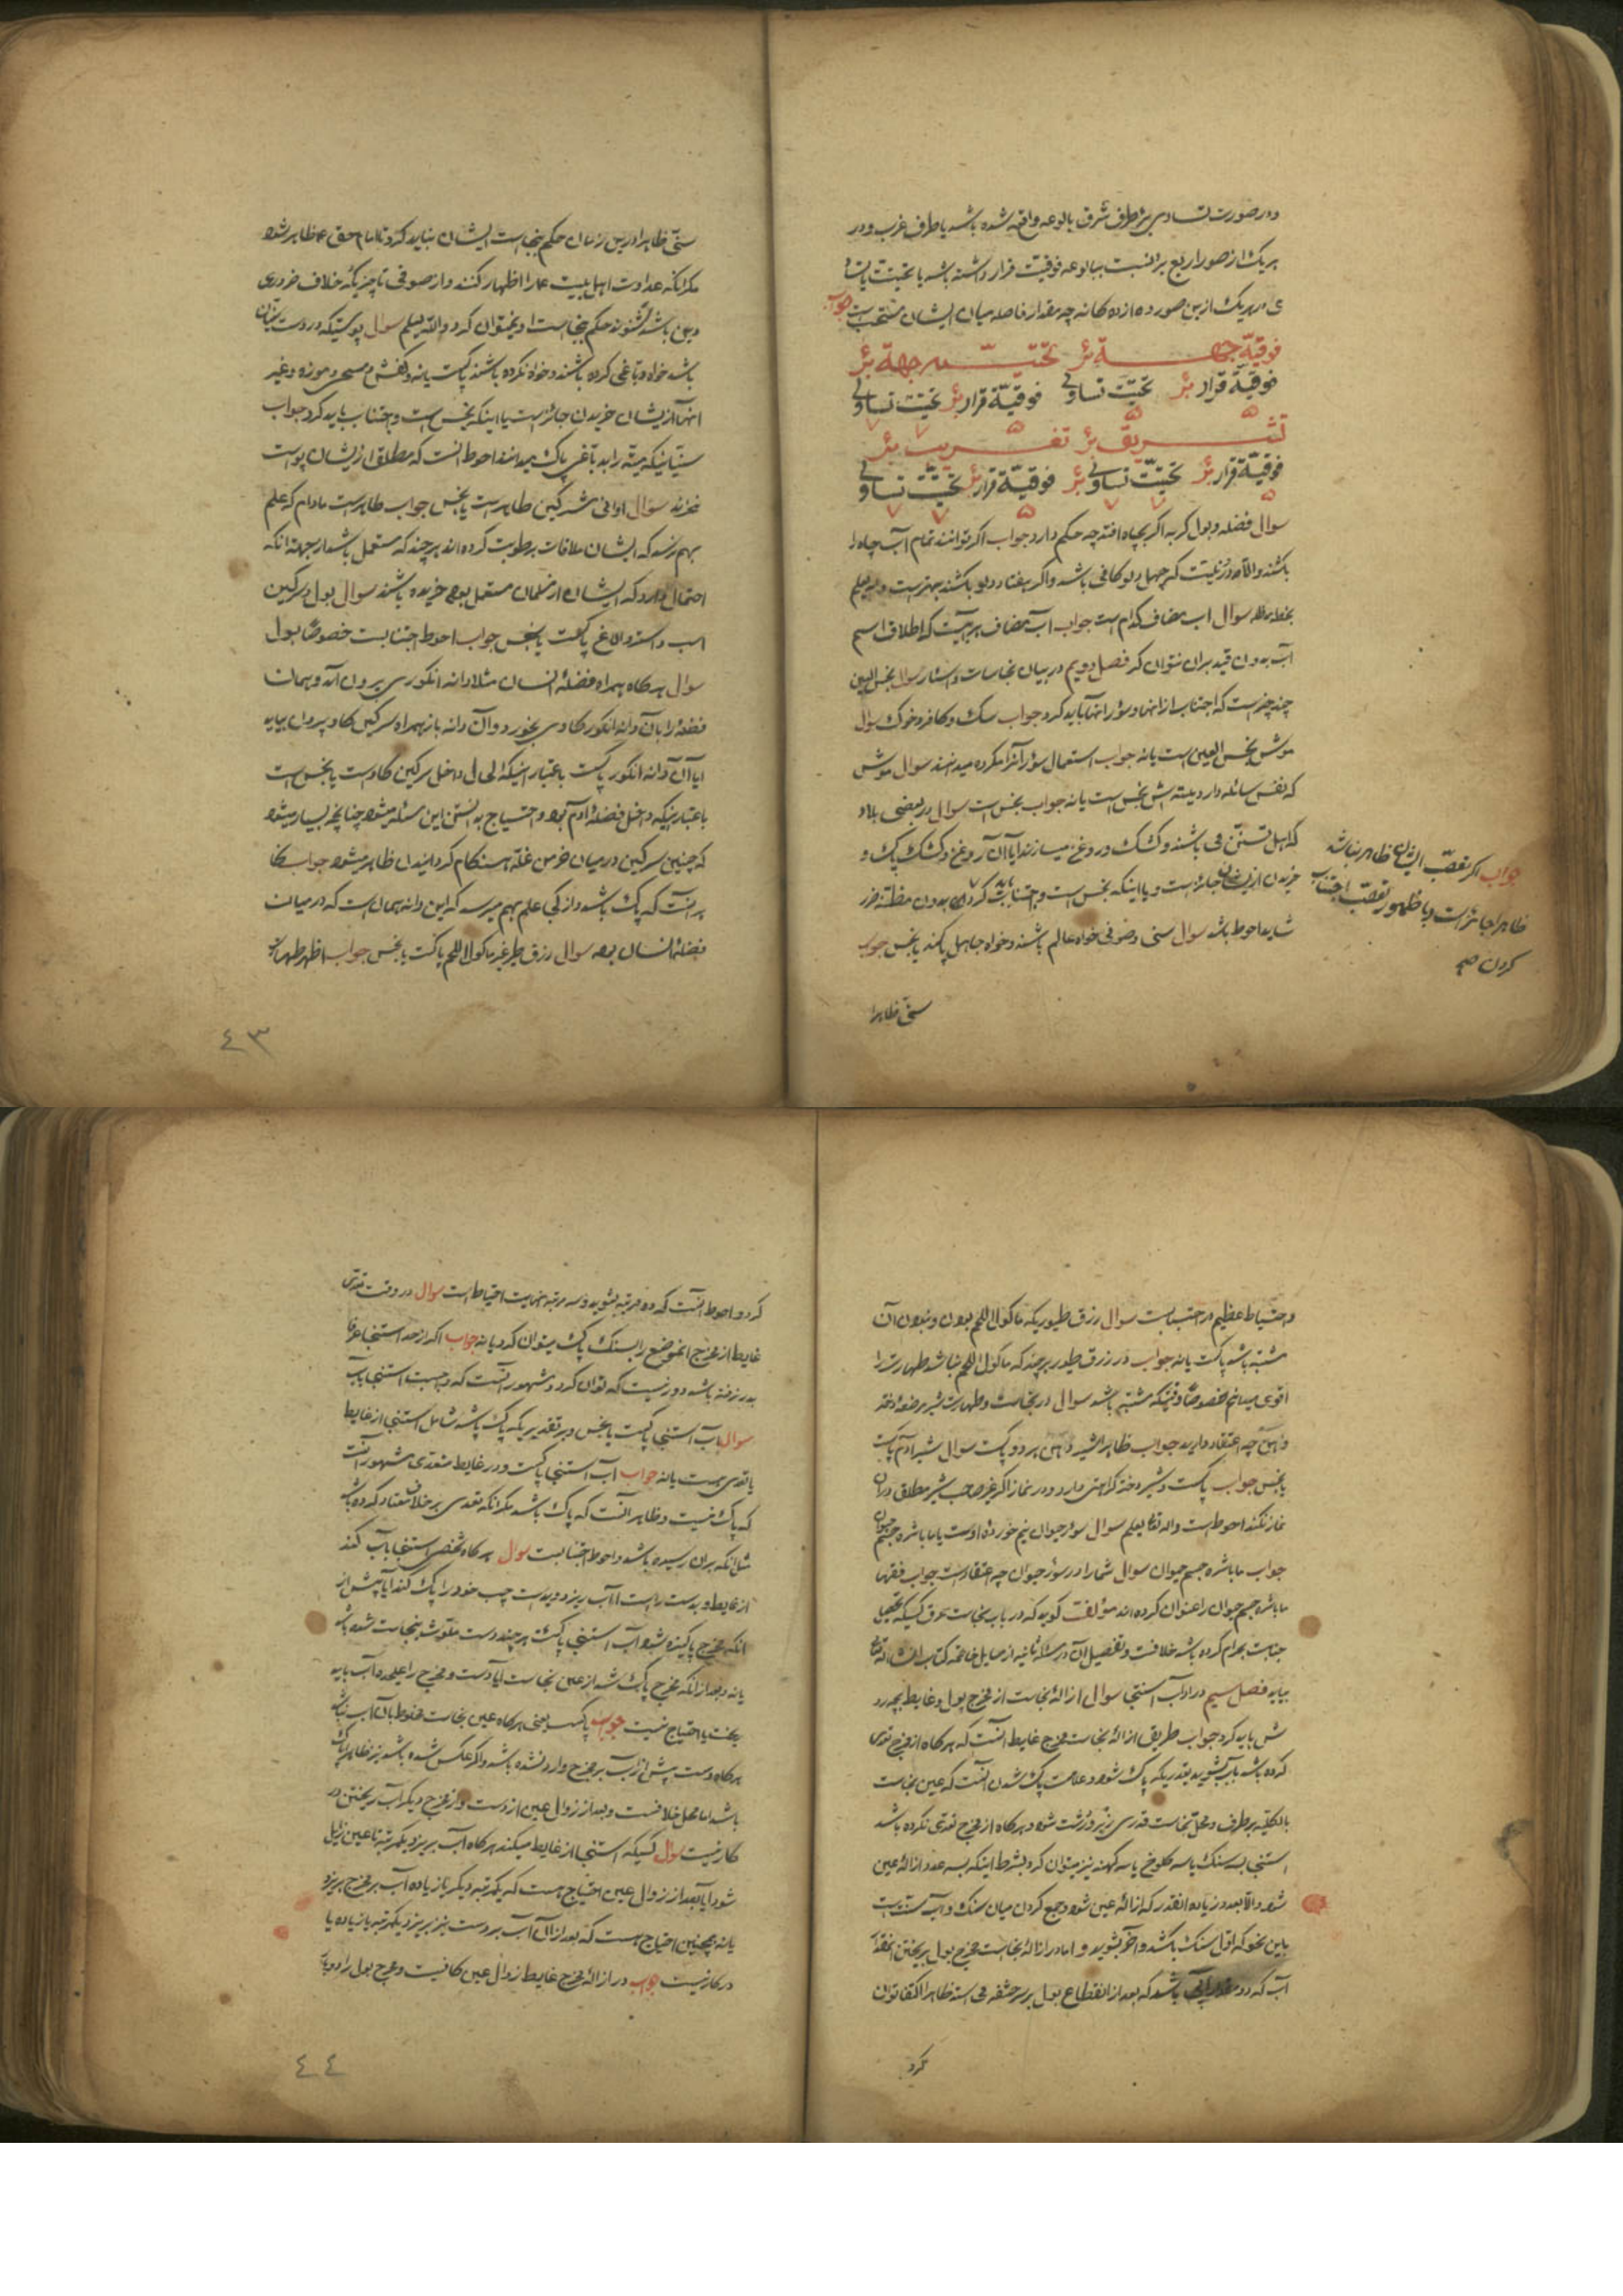 ودر صورت تساوی بئر طرف شرق بالوعه واقع شده باشد یا طرف غرب و در
هر یک از صور اربع بئر نسبت ببالوعه فوقیت قرار داشته باشد یا تحتیت یا تساو
ی در هر یک ازین صور دوازده کانه چه مقدار فاصله میان ایشان مستحب است جواب
فوقیّة جهة بئر تحتیّت جهة بئر
فوقیّة قرار بئر تحتیّت تساوی فوقیّة قرار بئر تحتیّت تساوی
تشریق بئر تغریب بئر
فوقیّة قرار بئر تحتیّت تساوی بئر فوقیّة قرار بئر تحتیّت تساوی
سوال فضله و بول کربه اکر بچاه افتد چه حکم دارد جواب اکر توانند تمام آب چاه را
بکشند والّا دور نیست که چهل دلو کافی باشد و اکر هفتاد دلو بکشند بهتر است والله یعلم
سوال اب مضاف کدام است جواب آب مضاف هر آبیست که اطلاق اسم
آب بدون قید بران نتوان کرد فصل دویم در بیان نجاسات و اسئار سوال نجس العین
چند چیز است که اجتناب از انها و سؤر انها باید کرد جواب سک و کافر و خوک سوال
موش نجس العین است یا نه جواب استعمال سؤر آنرا مکروه میدانند سوال موش
که نفس سائله دارد میته اش نجس است یا نه جواب نجس است سوال در بعضی بلاد
که اهل تسنّن می باشند و کشک و روغن میسازند ایا آن روغن و کشک پاک و
خریدن از ایشان جائز است و یا اینکه نجس است و اجتناب باید کرد بدون مظنّه ضرر
شاید احوط باشد سوال سنی و صوفی خواه عالم باشند و خواه جاهل پاکند یا نجس جواب
جواب اکر تعصّب ایشان ظاهر نباشد
ظاهرا جائز است و با ظهور تعصّب اجتناب
کردن صح
سنّی ظاهرا
سنّی ظاهرا درین زمان حکم بنجاست ایشان نباید کرد تا امام حق ع ظاهر شود
مکر انکه عداوت اهل بیت ع را اظهار کنند و از صوفی تا چیزیکه خلاف ضروری
دین باشد نشنوند حکم بنجاست او نمیتوان کرد والله یعلم سوال پوستیکه در دست سنّیان
باشد خواه دباغی کرده باشند و خواه نکرده باشند پاکست یا نه و کفش و مسحی و موزه و غیر
انها از ایشان خریدن جائز است یا اینکه نجس است و اجتناب باید کرد جواب
سنّیانیکه میته را بدباغی پاک میدانند احوط انست که مطلقا از ایشان پوست
نخرند سوال اوانی مشرکین طاهر است یا نجس جواب طاهر است مادام که علم
بهم نرسد که ایشان ملاقات برطوبت کرده اند هر چند که مستعمل باشد از جهة انکه
احتمال دارد که ایشان از مسلمان مستعمل بوده خریده باشند سوال بول و سرکین
اسب و استر و الاغ پاکست یا نجس جواب احوط اجتنابست خصوصا بول
سوال هرکاه همراه فضلهٔ انسان مثلا دانه انکوری بیرون آمد و همان
فضله را با آن دانه انکور کاوی بخورد و آن دانه باز همراه سرکین کاو بیرون بیاید
ایا آن دانه انکور پاکست باعتبار اینکه الحال داخل سرکین کاوست یا نجس است
باعتبار اینکه داخل فضلهٔ ادم بوده و احتیاج بدانستن این مسئله میشود چنانچه بسیار میشود
که چنین سرکین در میان خرمن غلّه هنکام کردانیدن ظاهر میشود جواب
انست که پاک باشد و از کجا علم بهم میرسد که این دانه همان است که در میان
فضلهٔ انسان بوده سوال زرق طیر غیر ماکول اللحم پاکست یا نجس جواب اظهر طهارتست
٤٣
و احتیاط عظیم در اجتنابست سوال زرق طیوریکه ماکول اللحم بودن و نبودن آن
مشتبه باشد پاکست یا نه جواب در زرق طیور هر چند که ماکول اللحم نباشد طهارت را
اقوی میدانم خصوصا وقتیکه مشتبه باشد سوال در نجاست و طهارت شیر مرضعهٔ دختر
و اهن چه اعتقاد دارید جواب ظاهرا شیر و اهن هر دو پاکست سوال شیر ادم پاکست
یا نجس جواب پاکست و شیر دختر کراهتی دارد و در نماز اکر غیر صاحب شیر مطلق دران
نماز نکند احوط است والله تعالی یعلم سوال سؤر حیوان نیم خوردهٔ اوست یا ما باشره جسم حیوان
جواب ما باشره جسم حیوان سوال شما را در سؤر حیوان چه اعتقاد است جواب فقها
ما باشره جسم حیوان را عنوان کرده اند مؤلف کوید که در باب نجاست عرق کسیکه تحصیل
جنابت بحرام کرده باشد خلافست و تفصیل آن در مسئلهٔ ثانیه از مسایل خاتمه کتاب انشاء الله تعالی
بیاید فصل سیم در اداب استنجا سوال ازالهٔ نجاست از مخرج بول و غایط بچه رو
ش باید کرد جواب طریق ازالهٔ نجاست مخرج غایط انست که هرکاه از مخرج تعدی
کرده باشد بآب بشوید بقدریکه پاک شود و علامت پاک شدن انست که عین نجاست
بالکلیّه برطرف و محل نجاست قدری زبر و درشت شود و هرکاه از مخرج تعدی نکرده باشد
استنجا بسه سنک یا سه کلوخ یا سه کهنه نیز میتوان کرد بشرط اینکه بسه عدد ازالهٔ عین
شود والّا بعدد زیاده انقدر که ازالهٔ عین شود و جمع کردن میان سنک و آب سنت است
باین نحو که اوّل سنک بکشد و آخر بشوید و امّا در ازالهٔ نجاست مخرج بول بریختن انقدر
آب که دو باشد که بعد از انقطاع بول بر سر حشفه می استد ظاهرا اکتفا توان
کرد
کرد و احوط انست که دو مرتبه بشوید و سه مرتبه نهایت احتیاط است سوال در وقت تعدی
غایط از مخرج انموضع را بسنک پاک میتوان کرد یا نه جواب اکر از حد استنجا عرفا
بدر نرفته باشد دور نیست که توان کرد و مشهور انست که واجبست استنجا بآب
سوال آب استنجا پاکست یا نجس و بر تقدیریکه پاک باشد شامل استنجا از غایط
با تعدی هست یا نه جواب آب استنجا پاکست و در غایط متعدی مشهور انست
که پاک نیست و ظاهر انست که پاک باشد مکر انکه تعدی بر خلاف معتاد کرده باشد
مثل انکه بران رسیده باشد و احوط اجتنابست سوال هر کاه شخصی استنجا بآب کند
از غایط و بدست راست آب ریزد و بدست چپ خود را پاک کند ایا پیش از
انکه مخرج پاکیزه شود آب استنجا پاکست هر چند دست ملوّث بنجاست شده باشد
یا نه و بعد از انکه مخرج پاک شد از عین نجاست ایا دست و مخرج را علیحده آب باید
ریخت یا احتیاج نیست جواب پاکست یعنی هرکاه عین نجاست مخلوط بان آب نباشد
هرکاه دست پیش از آب بر مخرج وارد نشده باشد و اکر عکس شده باشد نیز ظاهرا پاک
باشد اما محل خلافست و بعد از زوال عین از دست و از مخرج دیکر آب ریختن در
کار نیست سوال کسیکه استنجا از غایط میکند هرکاه آب بریزد یکمرتبه تا عین زایل
شود ایا بعد از زوال عین احتیاج هست که یکمرتبه دیکر یا زیاده آب بر مخرج بریزد
یا نه همچنین احتیاج هست که بعد ازان آب بر دست نیز بریزد یکمرتبه یا زیاده یا
در کار نیست جواب در ازالهٔ مخرج غایط زوال عین کافیست و مخرج بول را دو بار
٤٤